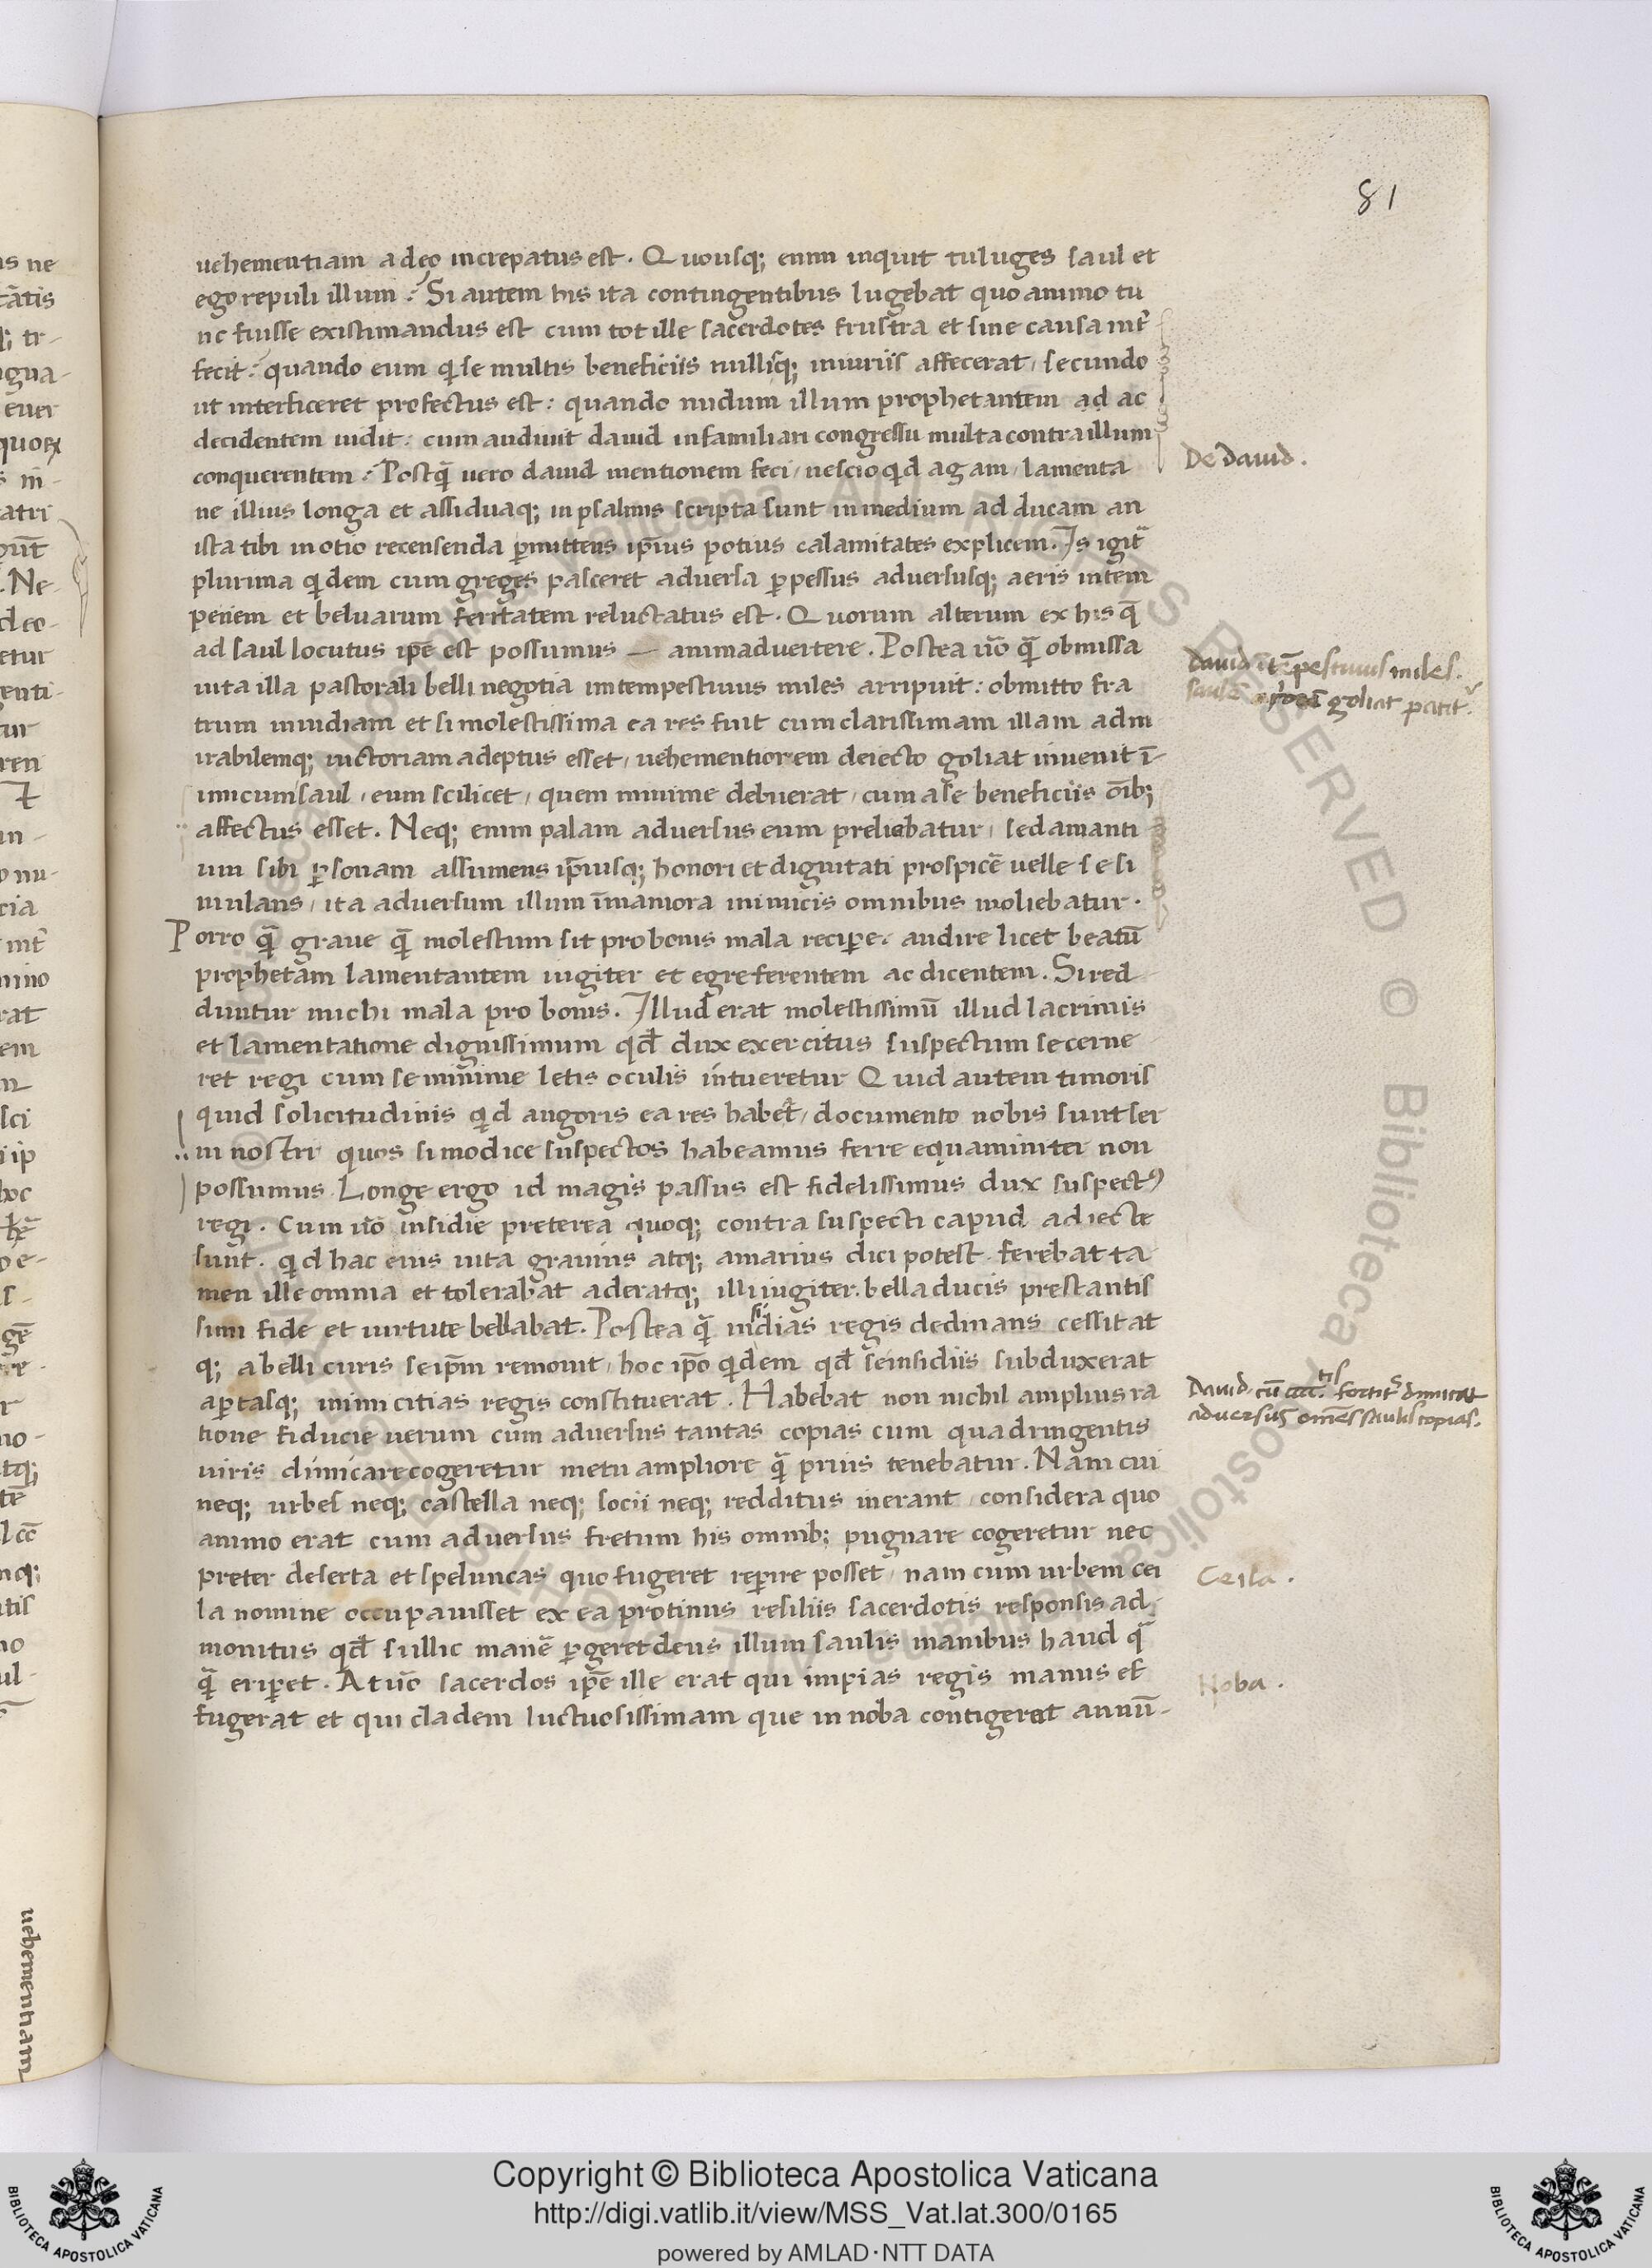 81
uehementiam adeo increpatus est. Quousq; enim inquit tu luges saul et
ego repuli illum? Si autem his ita contingentibus lugebat quo animo tu
nc fuisse existimandus est cum tot ille sacerdotes frustra et sine causa int͛
fecit? quando eum qͥ se multis beneficiis nullisq; iniuriis affecerat, secundo
ut interficeret profectus est: quando nudum illum prophetantem ad ac
decidentem uidit: cum audiuit dauid in familiari congressu multa contra illum
conquerentem? Postqᷓ uero dauid mentionem feci, nescio qͥd agam, lamenta
ne illius longa et assiduaq; in psalmis scripta sunt in medium adducam an
ista tibi in otio recensenda p̲mittens ip̄ius potius calamitates explicem. Is igit᷑
plurima qͥdem cum greges pasceret aduersa p̲pessus aduersusq; aeris intem
periem et beluarum feritatem reluctatus est. Quorum alterum ex his q̄
ad saul locutus ip̄e est possumus — animaduertere. Postea uō qᷓ obmissa
uita illa pastorali belli negotia intempestiuus miles arripuit: obmitto fra
trum inuidiam et si molestissima ea res fuit cum clarissimam illam adm
irabilemq; uictoriam adeptus esset, uehementiorem deiecto goliat inuenit ī-
imicum saul, eum scilicet, quem minime debuerat, cum a se beneficiis oīb;
affectus esset. Neq; enim palam aduersus eum preliabatur, sed amanti
um sibi p̲sonam assumens ip̄iusq; honori et dignitati prospicē uelle se si
mulans, ita aduersum illum īmaniora inimicis omnibus moliebatur.
Porro qᷓ graue qᷓ molestum sit pro bonis mala recip̲e audire licet beatū
prophetam lamentantem iugiter et egre ferentem ac dicentem. Si red
duntur michi mala pro bonis. Illud erat molestissimū illud lacrimis
et lamentatione dignissimum qd̄ dux exercitus suspectum se cerne
ret regi cum se minime letis oculis intueretur Quid autem timoris
quid solicitudinis qͥd angoris ea res habet, documento nobis sunt ser
ui nostri quos si modice suspectos habeamus ferre equaminiter non
possumus. Longe ergo id magis passus est fidelissimus dux suspectꝰ
regi. Cum uō insidie preterea quoq; contra suspecti capud adiecte
sunt. qͥd hac eius uita grauius atq; amarius dici potest. ferebat ta
men ille omnia et tolerabat aderatq; illi iugiter. bella ducis prestantis
simi fide et uirtute bellabat. Postea qᷓ insidias regis declinans cessit at
q; a belli curis seip̄m remouit, hoc ip̄o qͥdem qd̄ se insidiis subduxerat
ap̲tasq; inimicitias regis constituerat. Habebat non nichil amplius ra
tione fiducie uerum cum aduersus tantas copias cum quadringentis
uiris dimicare cogeretur metu ampliore qᷓ prius tenebatur. Nam cui
neq; urbes neq; castella neq; socii neq; redditus inerant, considera quo
animo erat cum aduersus fretum his omnib; pugnare cogeretur nec
preter deserta et speluncas quo fugeret rep̲ire posset, nam cum urbem cei
la nomine occupauisset ex ea protinus resiliis sacerdotis responsis ad
monitus qd̄ si illic manē p̲geret deus illum saulis manibus haud qᷓ
qᷓ erip̲et. At uō sacerdos ip̄e ille erat qui impias regis manus ef
fugerat et qui cladem luctuosissimam que in noba contigerat annū-
De dauid.
Dauid ītēpestiuus miles.
goliat patit᷑
Dauid, cū cccc.tis fortit͛ dimicat
aduersus omēs saulis copias.
Ceila.
Noba.
uehementiam
Copyright © Biblioteca Apostolica Vaticana
http://digi.vatlib.it/view/MSS_Vat.lat.300/0165
powered by AMLAD·NTT DATA
BIBLIOTECA APOSTOLICA VATICANA
BIBLIOTECA APOSTOLICA VATICANA